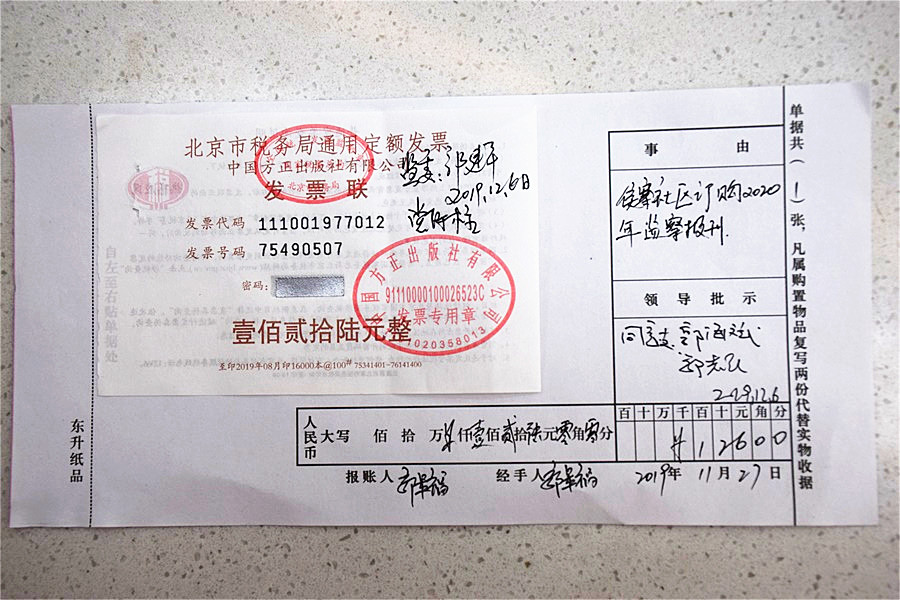 北京市税务局通用定额发票
中国方正出版社有限公司
发票联
发票代码 111001977012
发票号码 75490507
密码:
壹佰贰拾陆元整
至印2019年08月印16000本@100 75341401-76141400
国方正出版社有限公司
91110000100026523C
发票专用章
1020358013
监委:
2019.12.6日
自左至右贴单据处
东升纸品
事 由
社区订购2020
年监察报刊.
领导批示
同意支
2019.12.6
百十万千百十元角分
¥12600
人民币
大写 佰拾万仟壹佰贰拾陆元零角零分
报账人
经手人
2019年11月27日
单据共(1)张,凡属购置物品复写两份代替实物收据